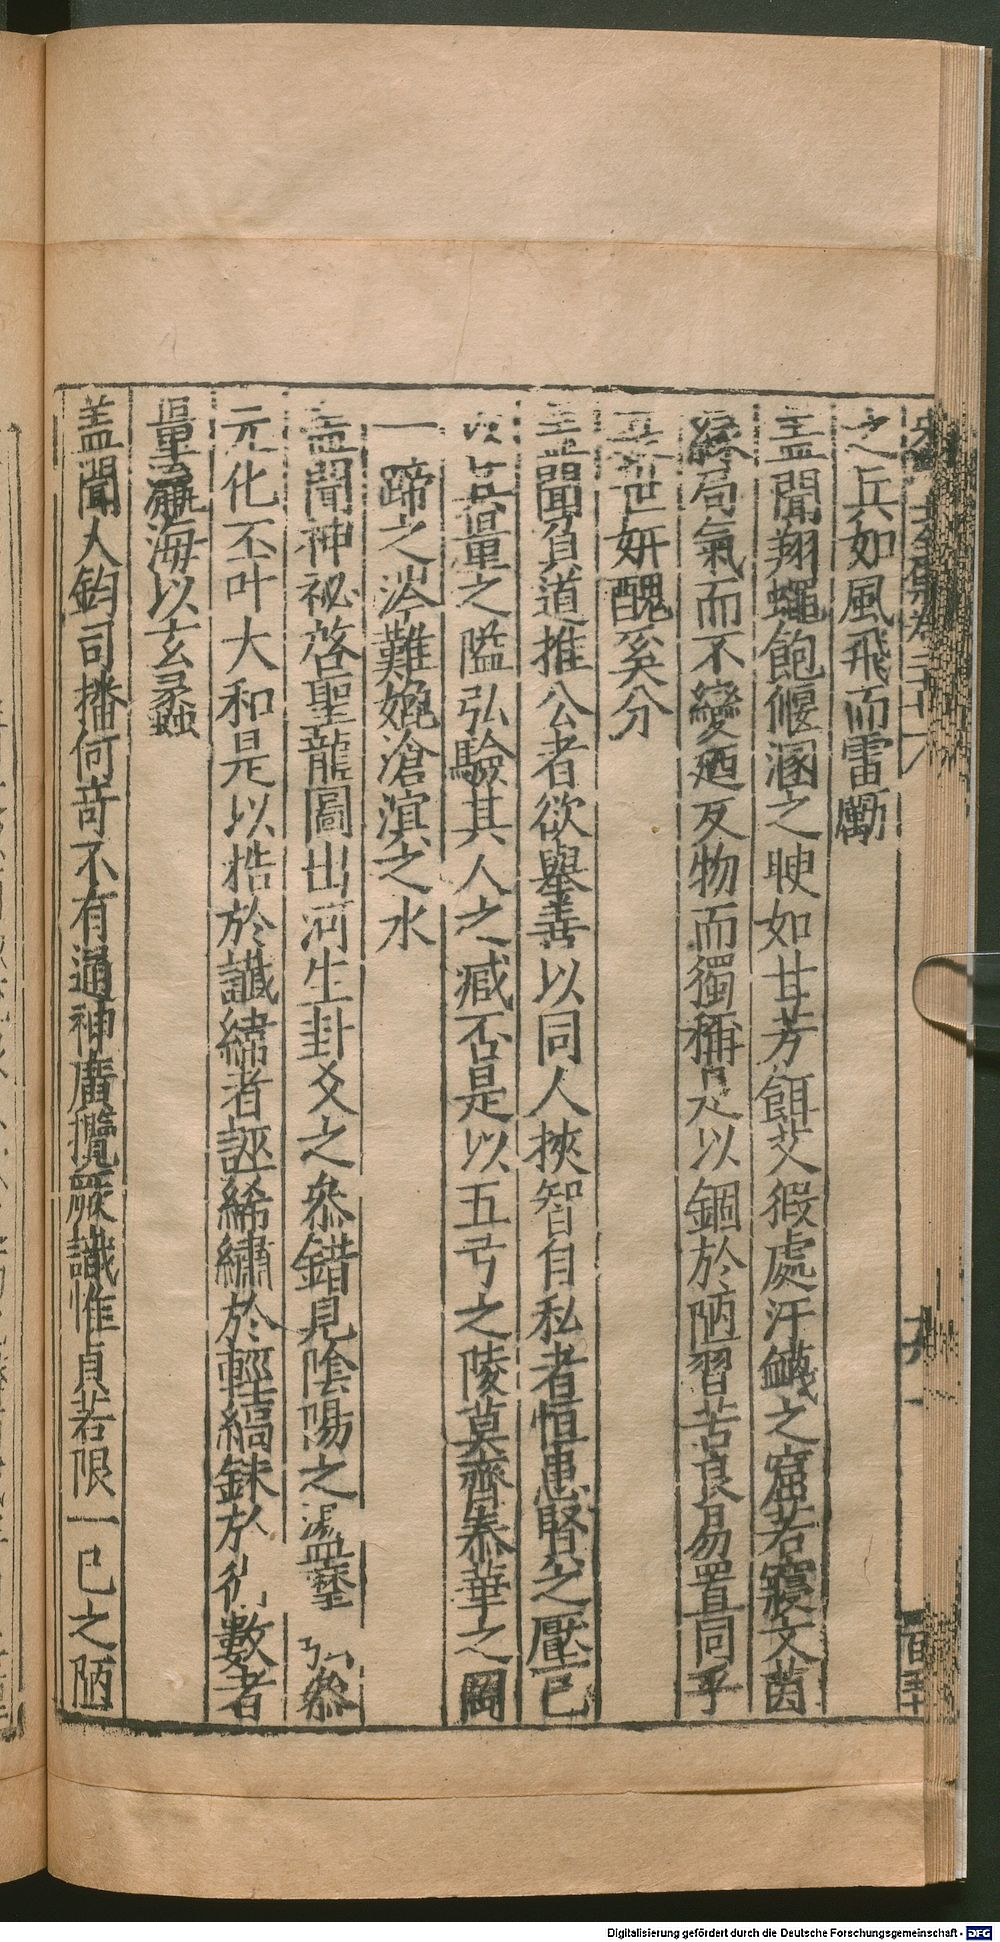 之兵如風飛而雷勵
盖聞翔蠅飽偃溷之腴如甘芳餌艾豭處汙衊之窟若寢文茵
緣局氣而不變廼反物而獨稱是以錮於陋習苦良易置同乎
世妍醜奚分
盖聞負道推公者欲舉善以同人挾智自私者恒患賢之壓己
量之隘弘驗其人之臧否是以五弓之陵莫齊泰華之岡
一蹄之涔難娩滄溟之水
盖聞神祕啓聖龍圖出河生卦爻之叅錯見陰陽之盪 弘叅
元化丕叶大和是以梏於讖緯者誣絺繡於輕縞銖於 數者
量瀛海以玄蠡
盖聞人鈞司播何奇不有通神廣攬厥識惟貞若限一己之陋
Digitalisierung gefördert durch die Deutsche Forschungsgemeinschaft - DFG